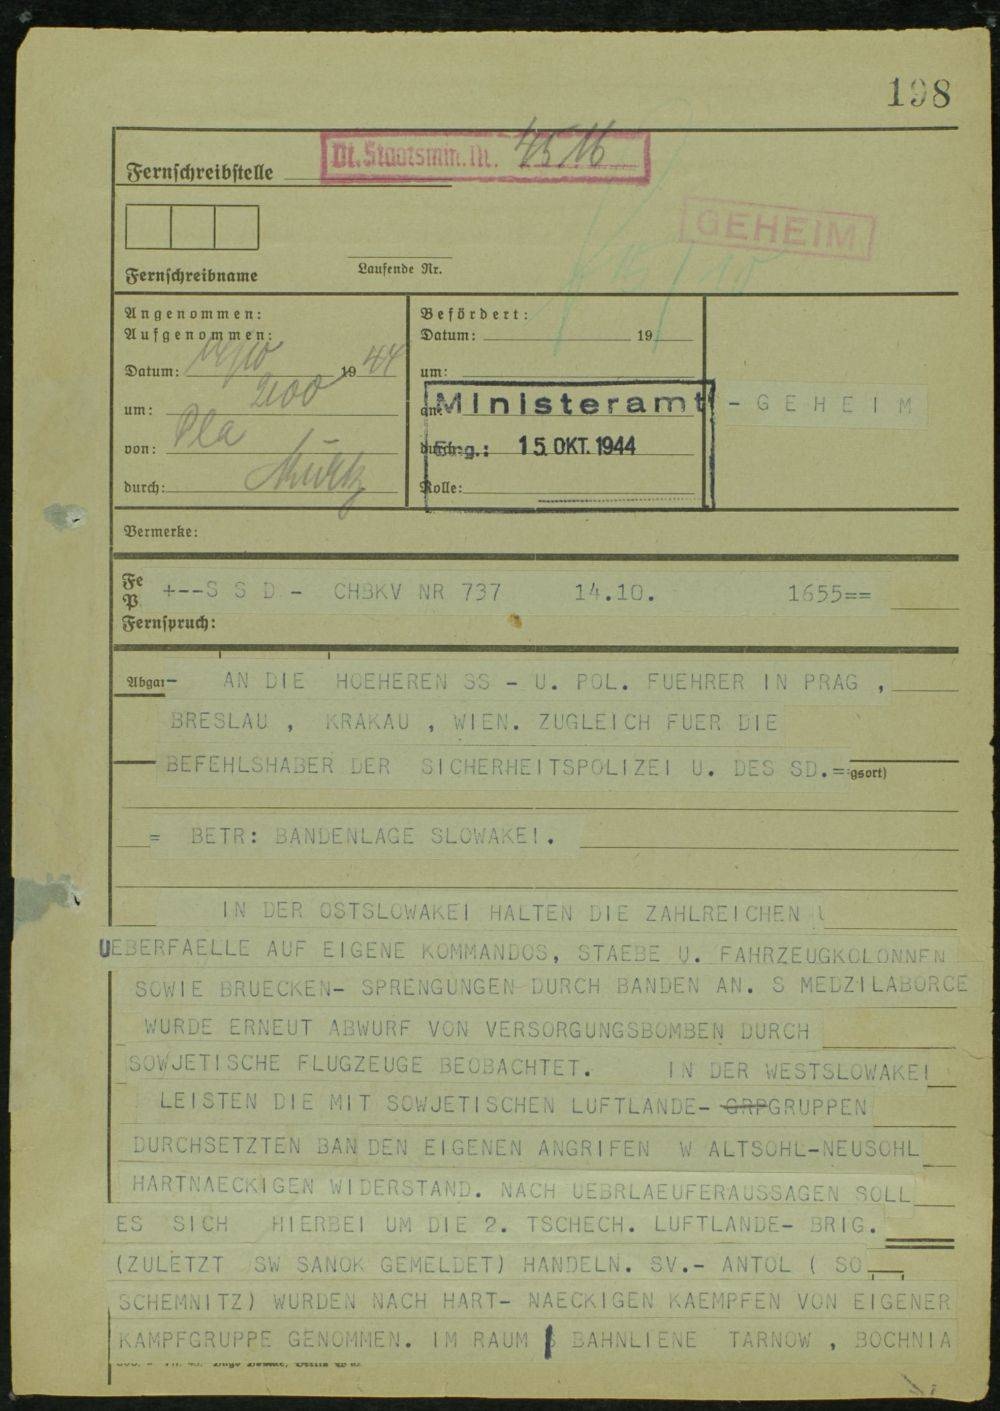 198
Dt. Staatsmin. Nr. 4516
Fernschreibstelle
GEHEIM
Fernschreibname
Laufende Nr.
Angenommen:
Aufgenommen:
Datum: 19 44
um: 200
von: Pla
durch:
Befördert:
Datum: 19
um:
an:
durch:
Rolle:
Ministeramt
Eing.: 15. OKT. 1944
- G E H E I M
Vermerke:
Fe
P
Fernspruch:
+--S S D - CHBKV NR 737 14.10. 1655==
Abgan
- AN DIE HOEHEREN SS - U. POL. FUEHRER IN PRAG ,
BRESLAU , KRAKAU , WIEN. ZUGLEICH FUER DIE
BEFEHLSHABER DER SICHERHEITSPOLIZEI U. DES SD.=
gsort)
= BETR: BANDENLAGE SLOWAKEI.
IN DER OSTSLOWAKEI HALTEN DIE ZAHLREICHEN
UEBERFAELLE AUF EIGENE KOMMANDOS, STAEBE U. FAHRZEUGKOLONNEN
SOWIE BRUECKEN- SPRENGUNGEN DURCH BANDEN AN. S MEDZILABORCE
WURDE ERNEUT ABWURF VON VERSORGUNGSBOMBEN DURCH
SOWJETISCHE FLUGZEUGE BEOBACHTET. IN DER WESTSLOWAKEI
LEISTEN DIE MIT SOWJETISCHEN LUFTLANDE- GRPGRUPPEN
DURCHSETZTEN BANDEN EIGENEN ANGRIFEN W ALTSOHL-NEUSOHL
HARTNAECKIGEN WIDERSTAND. NACH UEBRLAEUFERAUSSAGEN SOLL
ES SICH HIERBEI UM DIE 2. TSCHECH. LUFTLANDE- BRIG.
(ZULETZT SW SANOK GEMELDET) HANDELN. SV.- ANTOL ( SO
SCHEMNITZ) WURDEN NACH HART- NAECKIGEN KAEMPFEN VON EIGENER
KAMPFGRUPPE GENOMMEN. IM RAUM S BAHNLIENE TARNOW , BOCHNIA